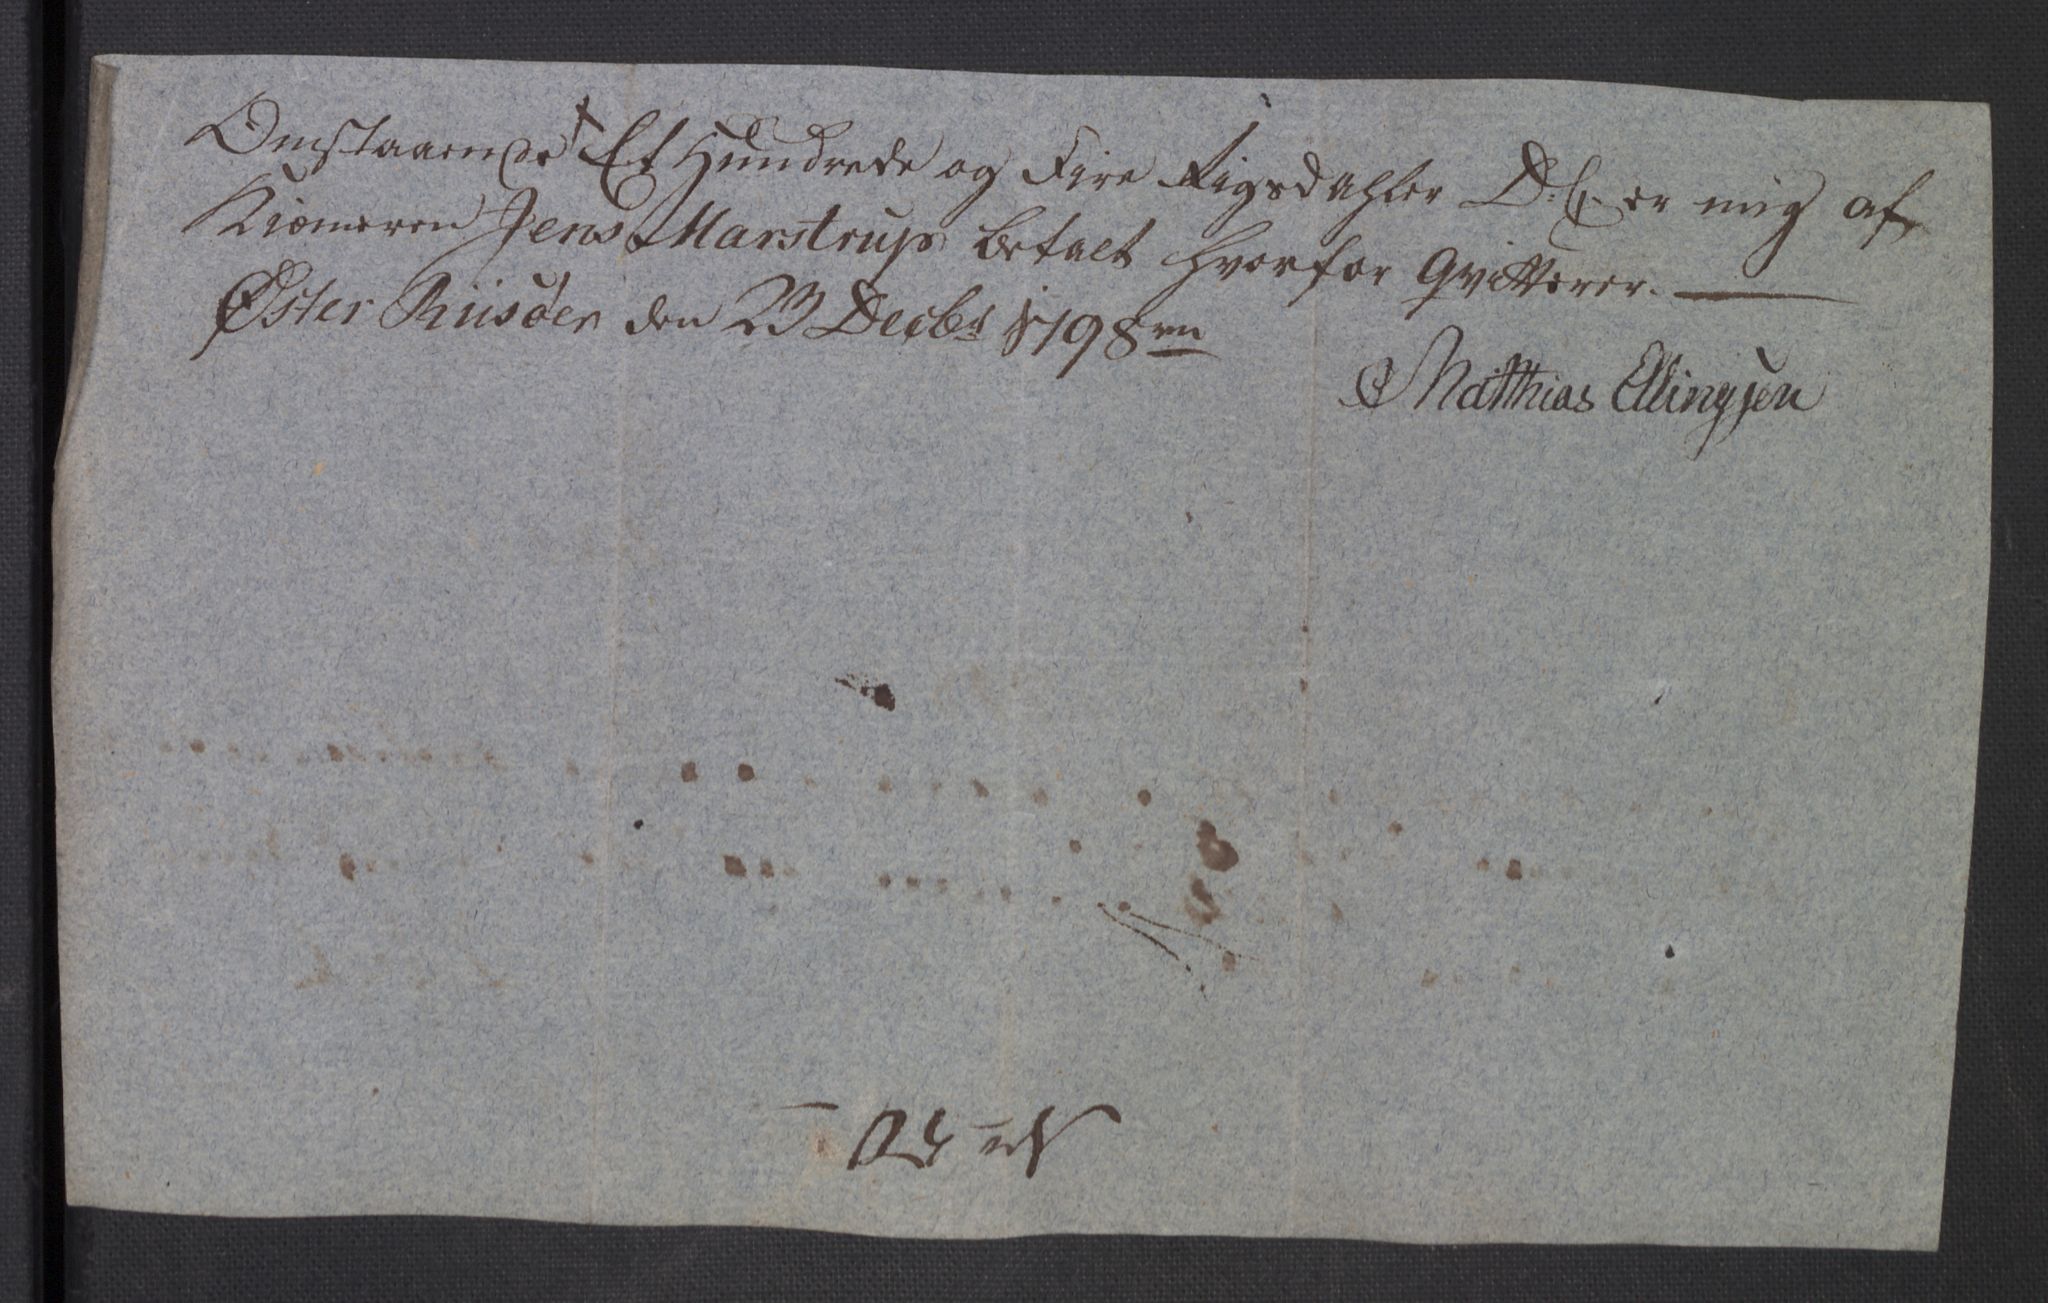 Omstaaende Et Hundrede og Fire Rigsdahler D: C: er mig af
Kiømeren Jens Marstrup betalt hvorfor Qvitterer. —
Øster Riisöer den 23 Decbr 1798
Matthias Ellingsen